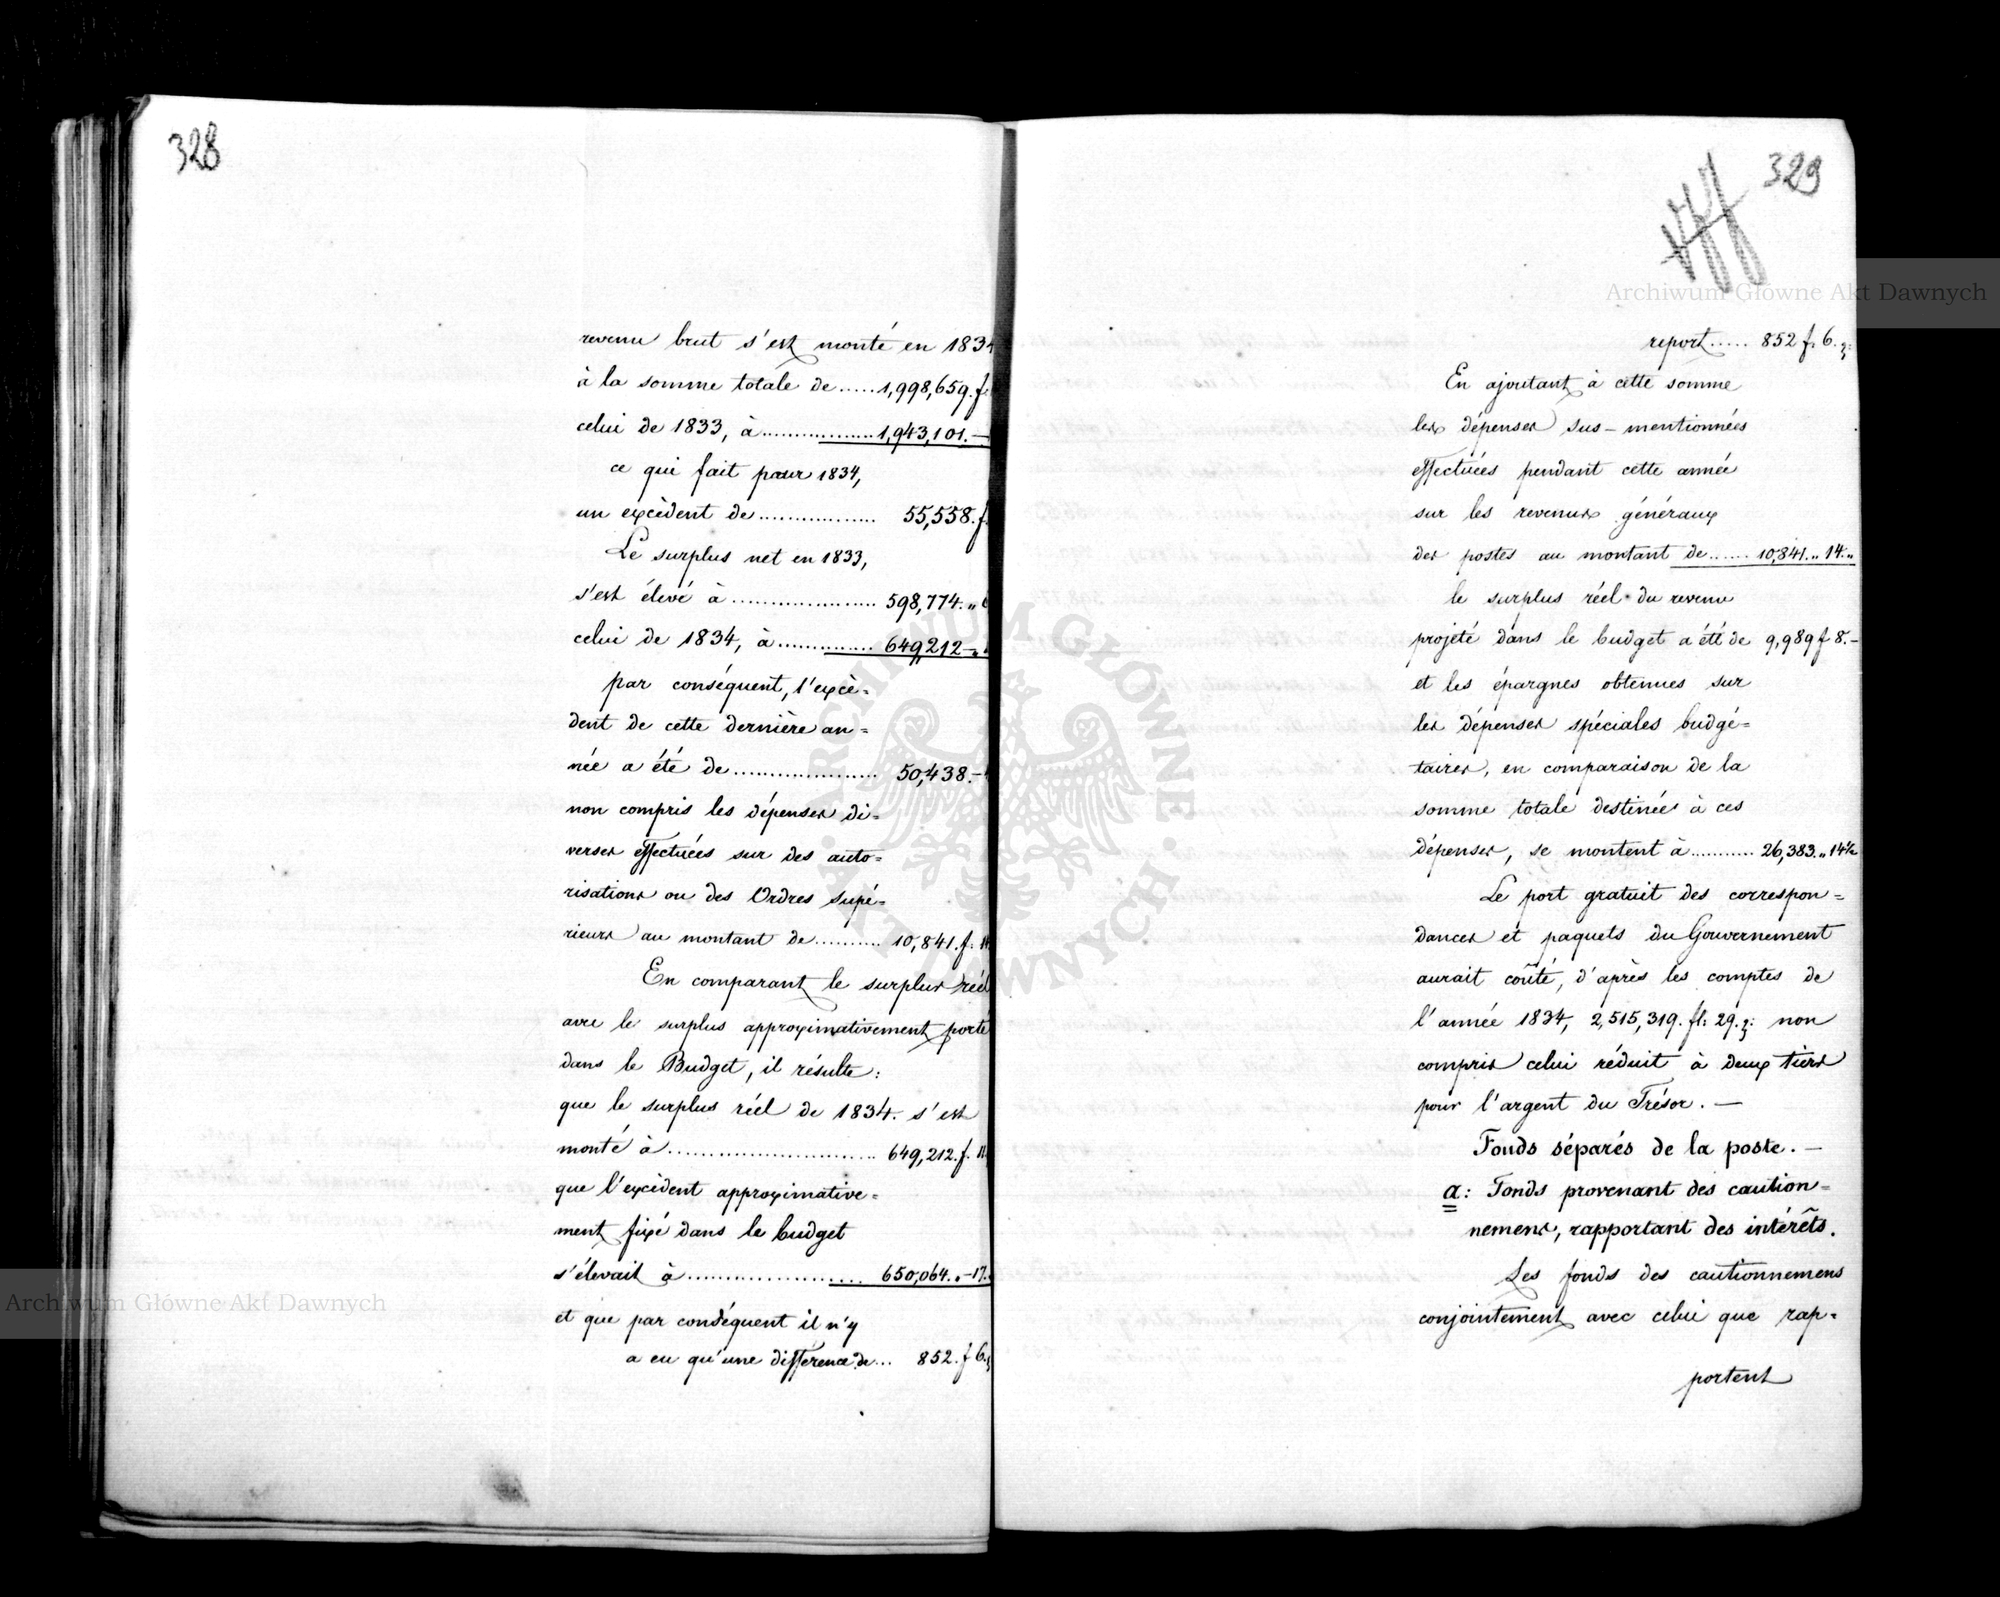 328
revenu brut s'est monté en 1834
à la somme totale de ..... 1,998,659. f.
celui de 1833, à ................. 1,943,101. —
ce qui fait pour 1834,
un excèdent de ................. 55,558. f.
Le surplus net en 1833,
s'est élevé à .................... 598,774. „ 6
celui de 1834, à .............. 649,212 — „
par conséquent, l'excè=
dent de cette dernière an=
née a été de .................... 50,438. —
non compris les dépenses di=
verses effectuées sur des auto=
risations ou des Ordres supé=
rieurs au montant de .......... 10,841. f. 14
En comparant le surplus réel
avec le surplus approximativement porté
dans le Budget, il résulte:
que le surplus réel de 1834. s'est
monté à ............................. 649,212. f. 11
que l'excèdent approximative=
ment fixé dans le budget
s'élevait à ........................ 650,064. „ —17.
et que par conséquent il n'y
a eu qu'une différence de ... 852. f 6.
329
report ..... 852 f. 6. g:
En ajoutant à cette somme
les dépenses sus-mentionnées
effectuées pendant cette année
sur les revenus généraux
des postes au montant de ...... 10,841. „ 14. „
le surplus réel du revenu
projeté dans le budget a été de 9,989 f 8. —
et les épargnes obtenues sur
les dépenses spéciales budgé=
taires, en comparaison de la
somme totale destinée à ces
dépenses, se montent à ........... 26,383. „ 14½
Le port gratuit des correspon=
dances et paquets du Gouvernement
aurait coûté, d'après les comptes de
l'année 1834, 2,515,319. fl: 29. g: non
compris celui réduit à deux tiers
pour l'argent du Trésor. —
Fonds séparés de la poste. —
a: Fonds provenant des caution=
nemens, rapportant des intérêts.
Les fonds des cautionnemens
conjointement avec celui que rap=
portent
Archiwum Główne Akt Dawnych
Archiwum Główne Akt Dawnych
ARCHIWUM GŁÓWNE · AKT DAWNYCH ·